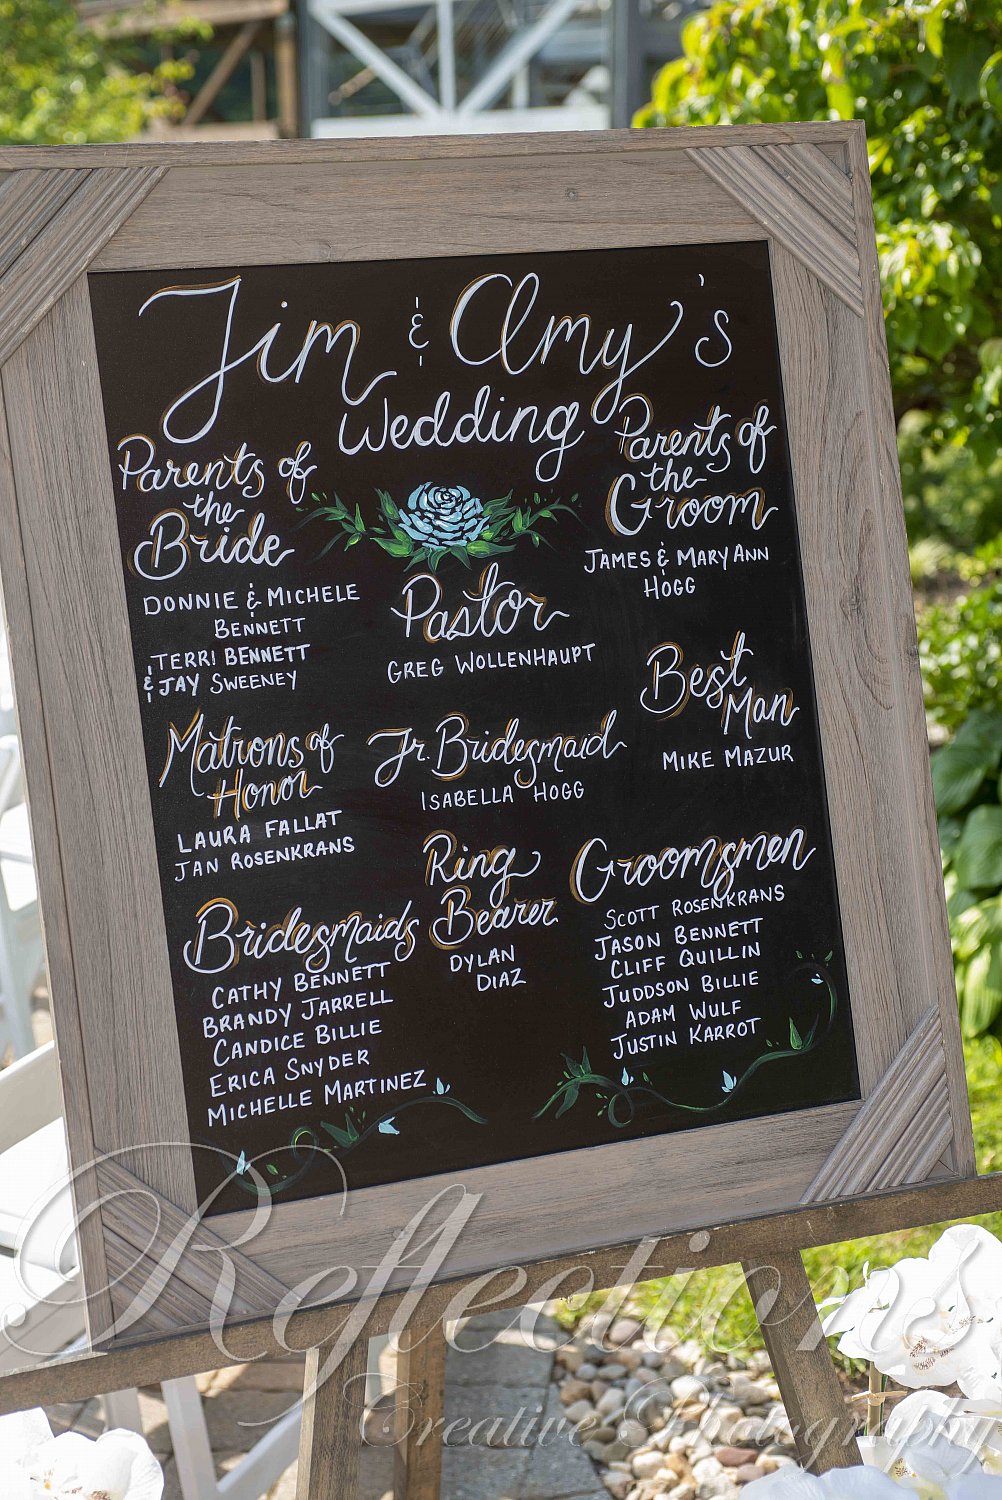 Jim & Amy's
Wedding
Parents of
the
Bride
DONNIE & MICHELE
BENNETT
TERRI BENNETT
& JAY SWEENEY
Pastor
GREG WOLLENHAUPT
Parents of
the
Groom
JAMES & MARY ANN
HOGG
Matrons of
Honor
LAURA FALLAT
JAN ROSENKRANS
Jr. Bridesmaid
ISABELLA HOGG
Best
Man
MIKE MAZUR
Bridesmaids
CATHY BENNETT
BRANDY JARRELL
CANDICE BILLIE
ERICA SNYDER
MICHELLE MARTINEZ
Ring
Bearer
DYLAN
DIAZ
Groomsmen
SCOTT ROSENKRANS
JASON BENNETT
CLIFF QUILLIN
JUDDSON BILLIE
ADAM WULF
JUSTIN KARROT
Reflections
Creative Photography